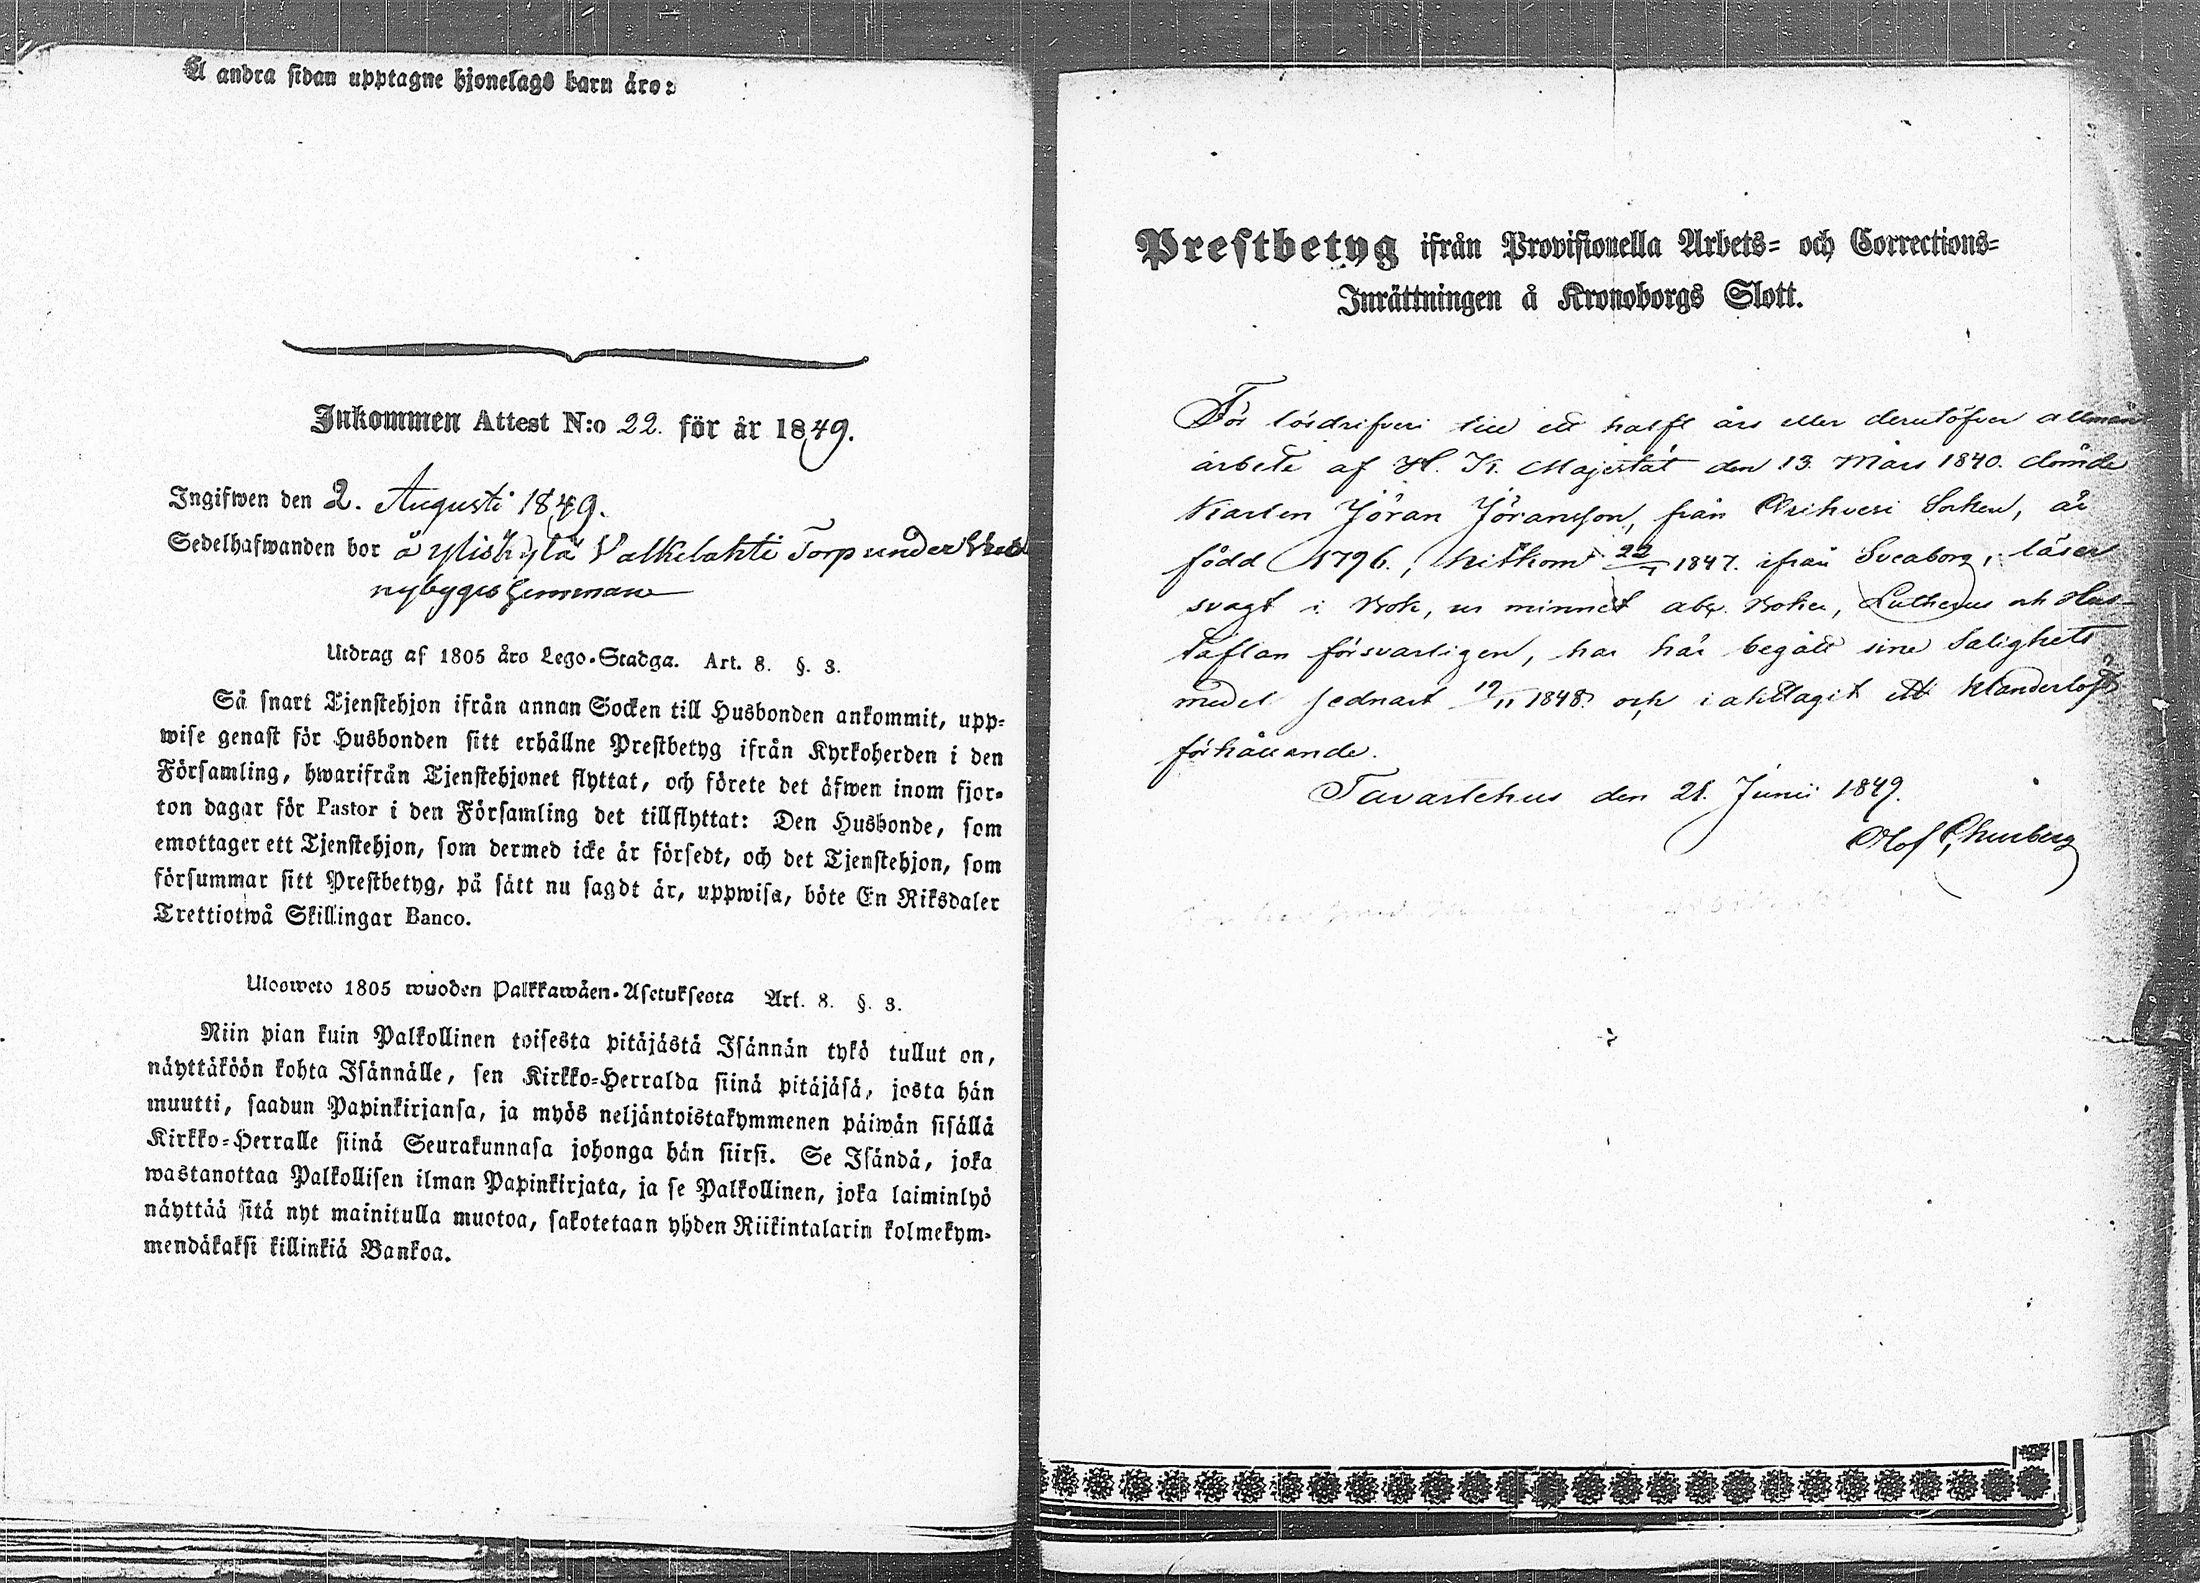 Å andra sidan upptagne hjonelags barn äro:
Inkommen Attest N:o 22. för år 1849.
Ingifwen den 2. Augusti 1849.
Sedelhafwanden bor å Yliskylä Valkelahti Torp under
nybygges hemman
Utdrag af 1805 års Lego-Stadga. Art. 8. §. 3.
Så snart Tjenstehjon ifrån annan Socken till Husbonden ankommit, upp-
wise genast för Husbonden sitt erhållne Prestbetyg ifrån Kyrkoherden i den
Församling, hwarifrån Tjenstehjonet flyttat, och förete det äfwen inom fjor-
ton dagar för Pastor i den Församling det tillflyttat: Den Husbonde, som
emottager ett Tjenstehjon, som dermed icke är försedt, och det Tjenstehjon, som
försummar sitt Prestbetyg, på sätt nu sagdt är, uppwisa, böte En Riksdaler
Trettiotwå Skillingar Banco.
Ulosweto 1805 wuoden Palkkawäen-Asetuksesta Art. 8. §. 3.
Niin pian kuin Palkollinen toisesta pitäjästä Isännän tykö tullut on,
näyttäköön kohta Isännälle, sen Kirkko-Herralda siinä pitäjäsä, josta hän
muutti, saadun Papinkirjansa, ja myös neljäntoistakymmenen päiwän sisällä
Kirkko-Herralle siinä Seurakunnasa johonga hän siirsi. Se Isändä, joka
wastanottaa Palkollisen ilman Papinkirjata, ja se Palkollinen, joka laiminlyö
näyttää sitä nyt mainitulla muotoa, sakotetaan yhden Riikintalarin kolmekym-
mendäkaksi killinkiä Bankoa.
Prestbetyg ifrån Provisionella Arbets- och Corrections-
Inrättningen å Kronoborgs Slott.
För lösdrifveri till ett halft års eller derutöfver allmänt
arbete af H. K. Majestät den 13. Mars 1840. dömde
Karlen Jöran Jöransson, från Socken, är
född 1796., hitkom 22/ 1847. ifrån Sveaborg, läser
svagt i Bok, ur minnet abc Boken, Lutherus och Hus-
taflan försvarligen, har här begått sine Salighets
medel sednast 19/11 1848. och iakttagit ett klanderlöst
förhållande.
Tavastehus den 21. Junii 1849.
Olof